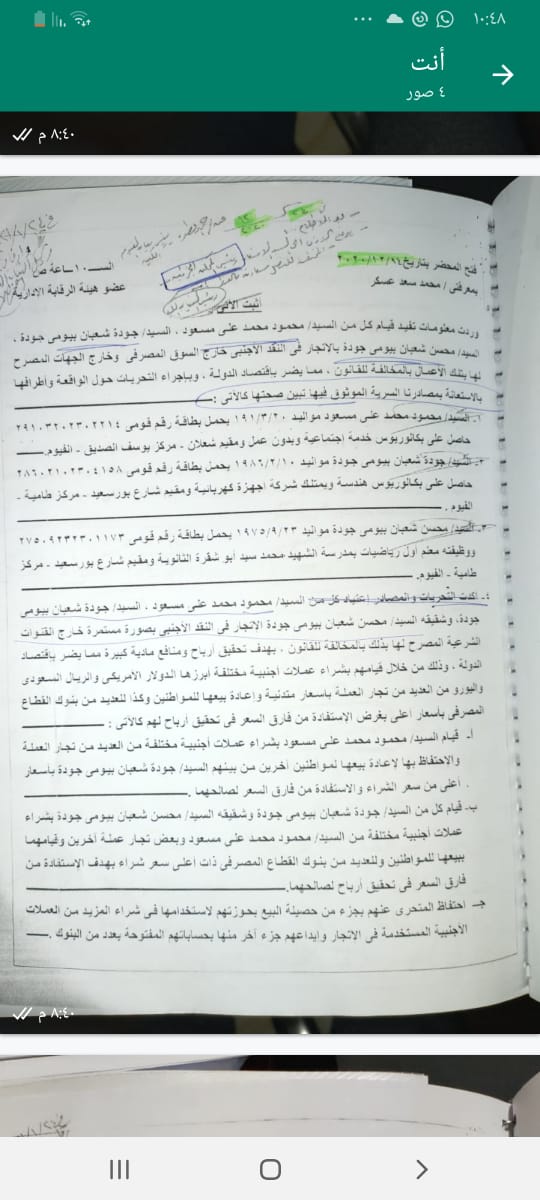 ١٠:٤٨
أنت
٤ صور
٨:٤٠ م
فتح المحضر بتاريخ ٢٠٢٠/١٢/١٤ الســـ١٠ـاعة ص
بمعرفتي / محمد سعد عسكر عضو هيئة الرقابة الادارية
أثبت الآتى
وردت معلومات تفيد قيام كل من السيد/ محمود محمد على مسعود ، السيد/ جودة شعبان بيومى جودة ،
السيد/ محسن شعبان بيومى جودة بالاتجار فى النقد الأجنبى خارج السوق المصرفى وخارج الجهات المصرح
لها بتلك الأعمال بالمخالفة للقانون ، مما يضر بإقتصاد الدولة ، وبإجراء التحريات حول الواقعة وأطرافها
بالاستعانة بمصادرنا السرية الموثوق فيها تبين صحتها كالآتى :
١- السيد/ محمود محمد على مسعود مواليد ١٩١/٣/٢٠ يحمل بطاقة رقم قومى ٢٩١٠٣٢٠٢٣٠٢٢١٤
حاصل على بكالوريوس خدمة اجتماعية وبدون عمل ومقيم شعلان - مركز يوسف الصديق - الفيوم.
٢- السيد/ جودة شعبان بيومى جودة مواليد ١٩٨٦/٢/١٠ يحمل بطاقة رقم قومى ٢٨٦٠٢١٠٢٣٠٤١٥٨
حاصل على بكالوريوس هندسة ويمتلك شركة اجهزة كهربائية ومقيم شارع بورسعيد - مركز طامية -
الفيوم .
٣- السيد/ محسن شعبان بيومى جودة مواليد ١٩٧٥/٩/٢٣ يحمل بطاقة رقم قومى ٢٧٥٠٩٢٣٢٣٠١١٧٣
ووظيفته معلم أول رياضيات بمدرسة الشهيد محمد سيد أبو شقرة الثانوية ومقيم شارع بورسعيد - مركز
طامية - الفيوم.
٤- أكدت التحريات والمصادر إعتياد كل من السيد/ محمود محمد على مسعود ، السيد/ جودة شعبان بيومى
جودة، وشقيقه السيد/ محسن شعبان بيومى جودة الاتجار فى النقد الأجنبى بصورة مستمرة خارج القنوات
الشرعية المصرح لها بذلك بالمخالفة للقانون ، بهدف تحقيق أرباح ومنافع مادية كبيرة مما يضر بإقتصاد
الدولة ، وذلك من خلال قيامهم بشراء عملات أجنبية مختلفة أبرزها الدولار الأمريكى والريال السعودى
واليورو من العديد من تجار العملة بأسعار متدنية وإعادة بيعها للمواطنين وكذا للعديد من بنوك القطاع
المصرفى بأسعار أعلى بغرض الإستفادة من فارق السعر فى تحقيق أرباح لهم كالآتى :
أ- قيام السيد/ محمود محمد على مسعود بشراء عملات أجنبية مختلفة من العديد من تجار العملة
والاحتفاظ بها لاعادة بيعها لمواطنين أخرين من بينهم السيد/ جودة شعبان بيومى جودة بأسعار
أعلى من سعر الشراء والاستفادة من فارق السعر لصالحهما .
ب- قيام كل من السيد/ جودة شعبان بيومى جودة وشقيقه السيد/ محسن شعبان بيومى جودة بشراء
عملات أجنبية مختلفة من السيد/ محمود محمد على مسعود وبعض تجار عملة أخرين وقيامهما
ببيعها للمواطنين وللعديد من بنوك القطاع المصرفى ذات اعلى سعر شراء بهدف الإستفادة من
فارق السعر فى تحقيق أرباح لصالحهما.
جـ- احتفاظ المتحرى عنهم بجزء من حصيلة البيع بحوزتهم لاستخدامها فى شراء المزيد من العملات
الأجنبية المستخدمة فى الاتجار وإيداعهم جزء أخر منها بحساباتهم المفتوحة بعدد من البنوك .
٨:٤٠ م